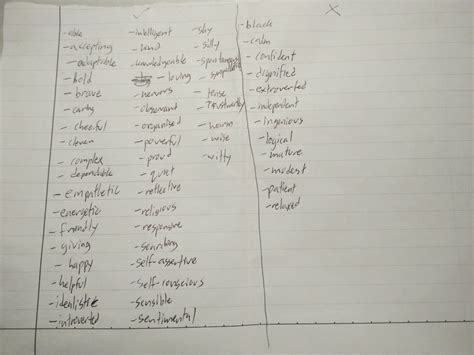 ✓
-able
-accepting
-adaptable
-bold
-brave
-caring
-cheerful
-clever
-complex
-dependable
-empathetic
-energetic
-friendly
-giving
-happy
-helpful
-idealistic
-introverted
-intelligent
-kind
-knowledgeable
-loving
-nervous
-observant
-organised
-powerful
-proud
-quiet
-reflective
-religious
-responsive
-self-assertive
-self-conscious
-sensible
-sentimental
-shy
-silly
-spontaneous
-tense
-trustworthy
-warm
-wise
-witty
X
-calm
-confident
-dignified
-extroverted
-independent
-ingenious
-logical
-mature
-modest
-patient
-relaxed